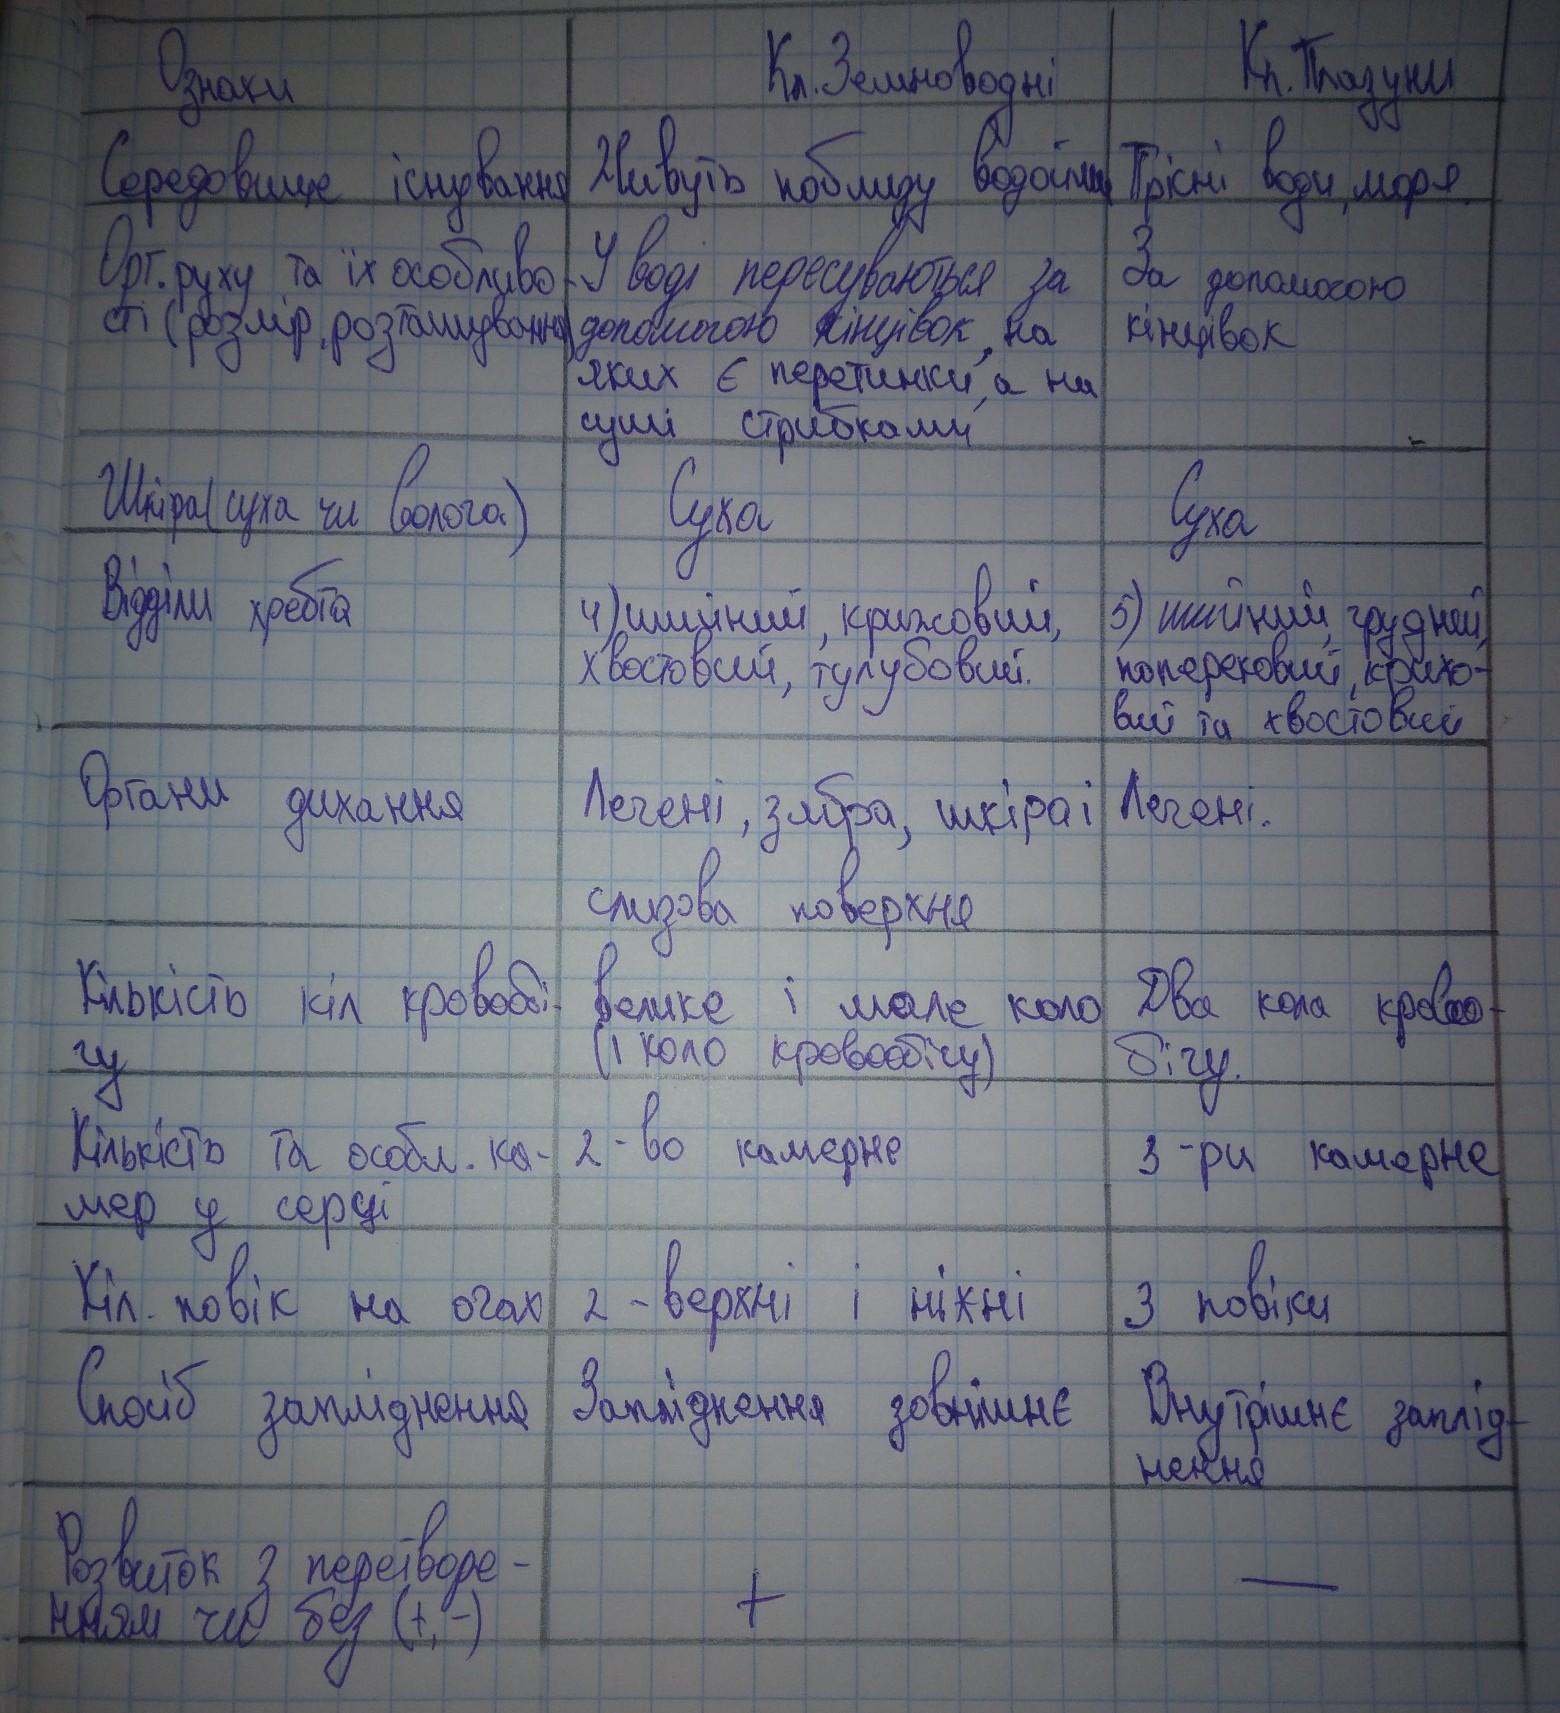 Ознаки Кл. Земноводні Кл. Плазуни
Середовище існування Живуть поблизу водойми Прісні води, моря.
Орг. руху та їх особливо- У воді пересуваються за За допомогою
сті (розмір, розташування) допомогою кінцівок, на кінцівок
яких є перетинки, а на
суші стрибками
Шкіра (суха чи волога) Суха Суха
Відділи хребта 4) шийний, крижовий, 5) шийний, грудний,
хвостовий, тулубовий. поперековий, крижо-
вий та хвостовий
Органи дихання Легені, зябра, шкіра і Легені.
слизова поверхня
Кількість кіл кровообі- велике і мале коло Два кола кровоо-
гу (1 коло кровообігу) бігу.
Кількість та особл. ка- 2-во камерне 3-ри камерне
мер у серці
Кіл. повік на очах 2 - верхні і ніжні 3 повіки
Спосіб запліднення Запліднення зовнішнє Внутрішнє заплід-
нення
Розвиток з перетворе- + —
нням чи без (+, -)